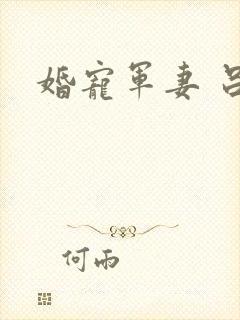 婚寵軍妻 呂
何雨